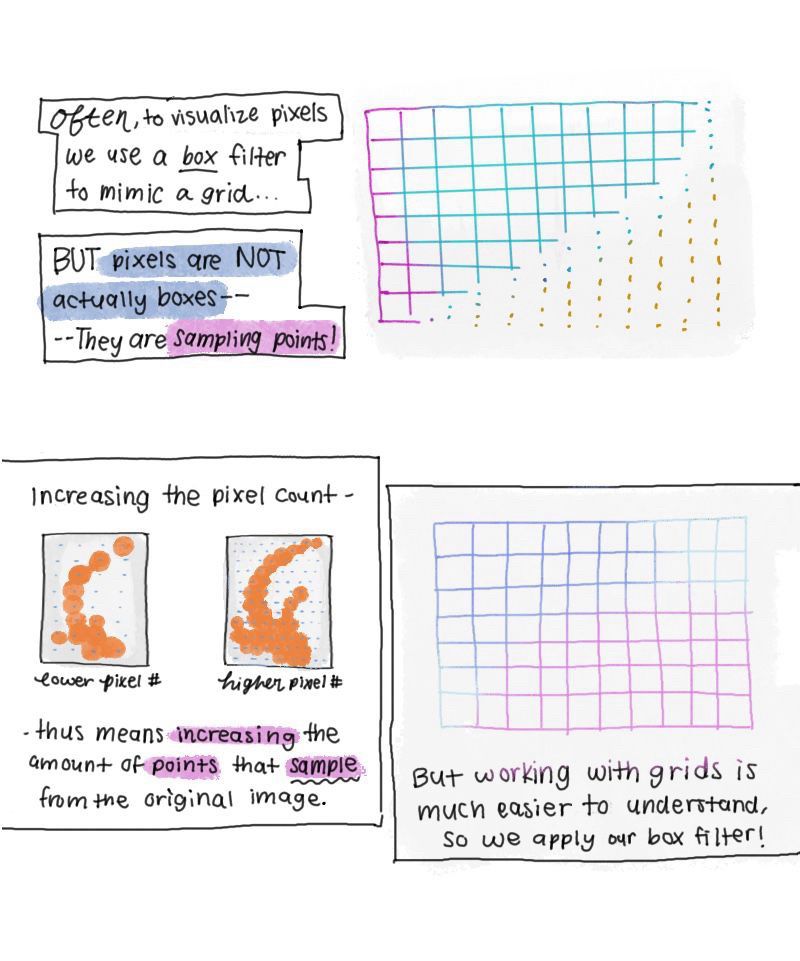 Often, to visualize pixels
we use a box filter
to mimic a grid...
BUT pixels are NOT
actually boxes--
--They are sampling points!
Increasing the pixel count-
lower pixel #
higher pixel #
-thus means increasing the
amount of points that sample
from the original image.
But working with grids is
much easier to understand,
so we apply our box filter!